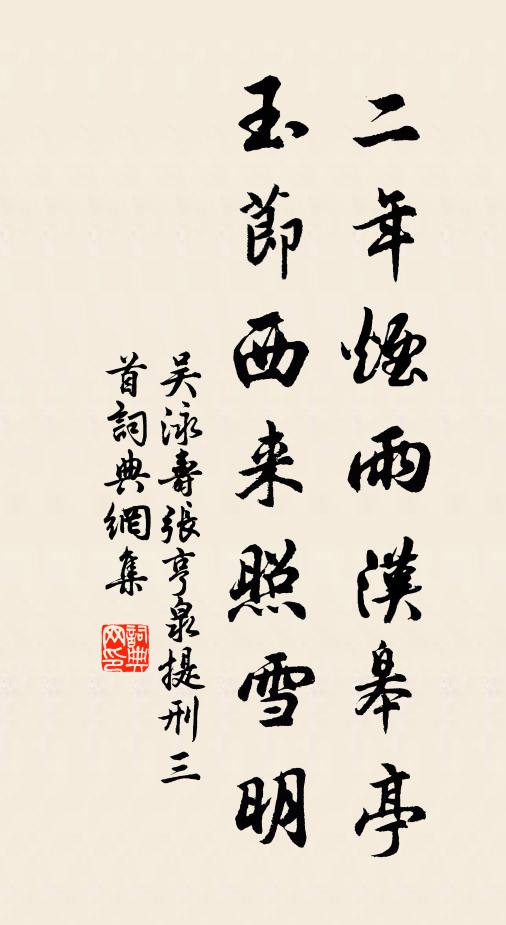 二年煙雨漢皋亭
玉節西来照雪明
吴泳壽張亨泉提刑三
首詞典網集
詞典網印